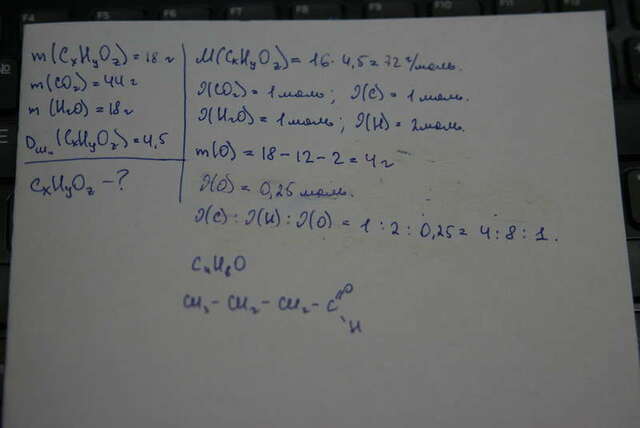 m(CxHyOz)=18 г
m(CO2)=44 г
m(H2O)=18 г
D(CxHyOz)=4,5
CxHyOz-?
M(CxHyOz)=16·4,5=72 г/моль.
ν(CO2)=1 моль; ν(C)=1 моль.
ν(H2O)=1 моль; ν(H)=2 моль.
m(O)=18-12-2=4 г
ν(O)=0,25 моль.
ν(C):ν(H):ν(O)=1:2:0,25=4:8:1.
C4H8O
CH3-CH2-CH2-C
O
H